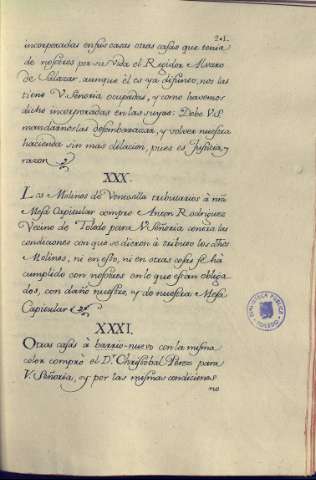 241.
incorporadas en sus casas otras casas que tenia
de nosotros por su vida el Regidor Alvaro
de Salazar, aunque él es ya difunto, nos las
tiene V. Señoria ocupadas, y como havemos
dicho incorporadas en las suyas: Debe V. S.
mandarnoslas desembarazar, y volver nuestra
hacienda sin mas dilacion, pues es Justicia, y
razon
XXX.
Los Molinos de Ventosilla tributarios à nrã
Mesa Capitular compro Anton Rodriguez
Vecino de Toledo para V. Señoria contra las
condiciones con que se dieron à tributo los dhos
Molinos, ni en esto, ni en otras cosas se há
cumplido con nosotros en lo que estan obliga
dos, con daño nuestro, y de nuestra Mesa
Capitular
XXXI.
Otras casas à barrio-nuevo con la misma
color compró el D.r Christobal Perez para
V. Señoria, y por las mismas condiciones
no
BIBLIOTECA PUBLICA
TOLEDO